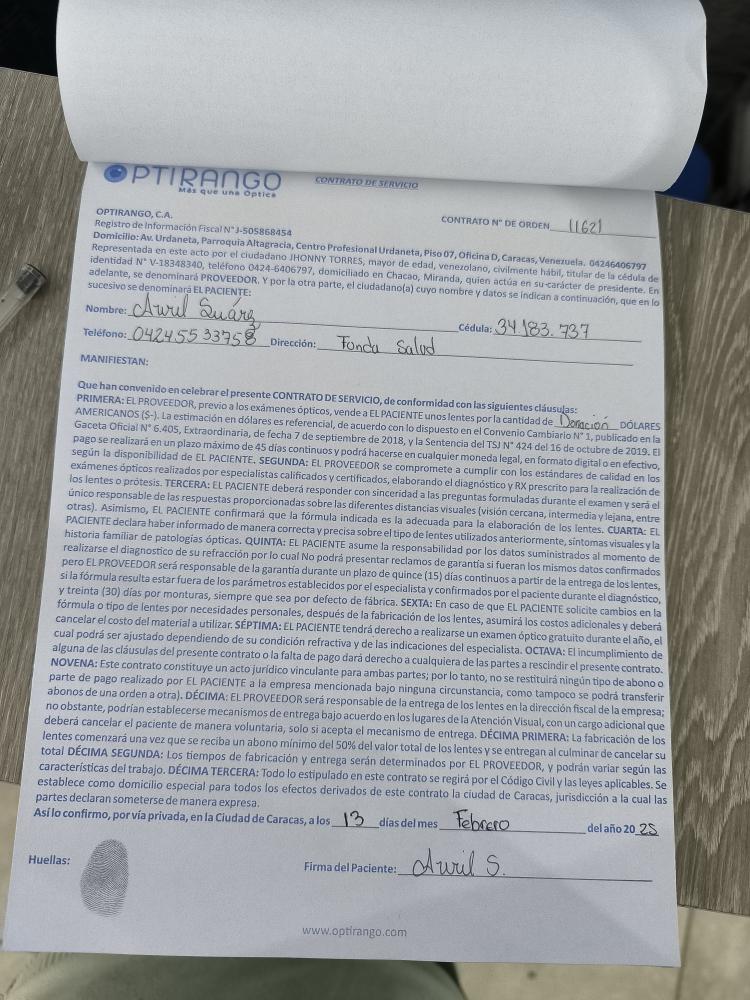 OPTIRANGO
Más que una Óptica
CONTRATO DE SERVICIO
CONTRATO N° DE ORDEN 11621
OPTIRANGO, C.A.
Registro de Información Fiscal N° J-505868454
Domicilio: Av. Urdaneta, Parroquia Altagracia, Centro Profesional Urdaneta, Piso 07, Oficina D, Caracas, Venezuela. 04246406797
Representada en este acto por el ciudadano JHONNY TORRES, mayor de edad, venezolano, civilmente hábil, titular de la cédula de
identidad N° V-18348340, teléfono 0424-6406797, domiciliado en Chacao, Miranda, quien actúa en su carácter de presidente. En
adelante, se denominará PROVEEDOR. Y por la otra parte, el ciudadano(a) cuyo nombre y datos se indican a continuación, que en lo
sucesivo se denominará EL PACIENTE:
Nombre: Avril Suárez Cédula: 34.183.737
Teléfono: 04245533758 Dirección: Fonda Salud
MANIFIESTAN:
Que han convenido en celebrar el presente CONTRATO DE SERVICIO, de conformidad con las siguientes cláusulas:
PRIMERA: EL PROVEEDOR, previo a los exámenes ópticos, vende a EL PACIENTE unos lentes por la cantidad de Donación DÓLARES
AMERICANOS (S-). La estimación en dólares es referencial, de acuerdo con lo dispuesto en el Convenio Cambiario N° 1, publicado en la
Gaceta Oficial N° 6.405, Extraordinaria, de fecha 7 de septiembre de 2018, y la Sentencia del TSJ N° 424 del 16 de octubre de 2019. El
pago se realizará en un plazo máximo de 45 días continuos y podrá hacerse en cualquier moneda legal, en formato digital o en efectivo,
según la disponibilidad de EL PACIENTE. SEGUNDA: EL PROVEEDOR se compromete a cumplir con los estándares de calidad en los
exámenes ópticos realizados por especialistas calificados y certificados, elaborando el diagnóstico y RX prescrito para la realización de
los lentes o prótesis. TERCERA: EL PACIENTE deberá responder con sinceridad a las preguntas formuladas durante el examen y será el
único responsable de las respuestas proporcionadas sobre las diferentes distancias visuales (visión cercana, intermedia y lejana, entre
otras). Asimismo, EL PACIENTE confirmará que la fórmula indicada es la adecuada para la elaboración de los lentes. CUARTA: EL
PACIENTE declara haber informado de manera correcta y precisa sobre el tipo de lentes utilizados anteriormente, síntomas visuales y la
historia familiar de patologías ópticas. QUINTA: EL PACIENTE asume la responsabilidad por los datos suministrados al momento de
realizarse el diagnostico de su refracción por lo cual No podrá presentar reclamos de garantía si fueran los mismos datos confirmados
pero EL PROVEEDOR será responsable de la garantía durante un plazo de quince (15) días continuos a partir de la entrega de los lentes,
si la fórmula resulta estar fuera de los parámetros establecidos por el especialista y confirmados por el paciente durante el diagnóstico,
y treinta (30) días por monturas, siempre que sea por defecto de fábrica. SEXTA: En caso de que EL PACIENTE solicite cambios en la
fórmula o tipo de lentes por necesidades personales, después de la fabricación de los lentes, asumirá los costos adicionales y deberá
cancelar el costo del material a utilizar. SÉPTIMA: EL PACIENTE tendrá derecho a realizarse un examen óptico gratuito durante el año, el
cual podrá ser ajustado dependiendo de su condición refractiva y de las indicaciones del especialista. OCTAVA: El incumplimiento de
alguna de las cláusulas del presente contrato o la falta de pago dará derecho a cualquiera de las partes a rescindir el presente contrato.
NOVENA: Este contrato constituye un acto jurídico vinculante para ambas partes; por lo tanto, no se restituirá ningún tipo de abono o
parte de pago realizado por EL PACIENTE a la empresa mencionada bajo ninguna circunstancia, como tampoco se podrá transferir
abonos de una orden a otra). DÉCIMA: EL PROVEEDOR será responsable de la entrega de los lentes en la dirección fiscal de la empresa;
no obstante, podrían establecerse mecanismos de entrega bajo acuerdo en los lugares de la Atención Visual, con un cargo adicional que
deberá cancelar el paciente de manera voluntaria, solo si acepta el mecanismo de entrega. DÉCIMA PRIMERA: La fabricación de los
lentes comenzará una vez que se reciba un abono mínimo del 50% del valor total de los lentes y se entregan al culminar de cancelar su
total DÉCIMA SEGUNDA: Los tiempos de fabricación y entrega serán determinados por EL PROVEEDOR, y podrán variar según las
características del trabajo. DÉCIMA TERCERA: Todo lo estipulado en este contrato se regirá por el Código Civil y las leyes aplicables. Se
establece como domicilio especial para todos los efectos derivados de este contrato la ciudad de Caracas, jurisdicción a la cual las
partes declaran someterse de manera expresa.
Así lo confirmo, por vía privada, en la Ciudad de Caracas, a los 13 días del mes Febrero del año 2025
Huellas:
Firma del Paciente: Avril S.
www.optirango.com